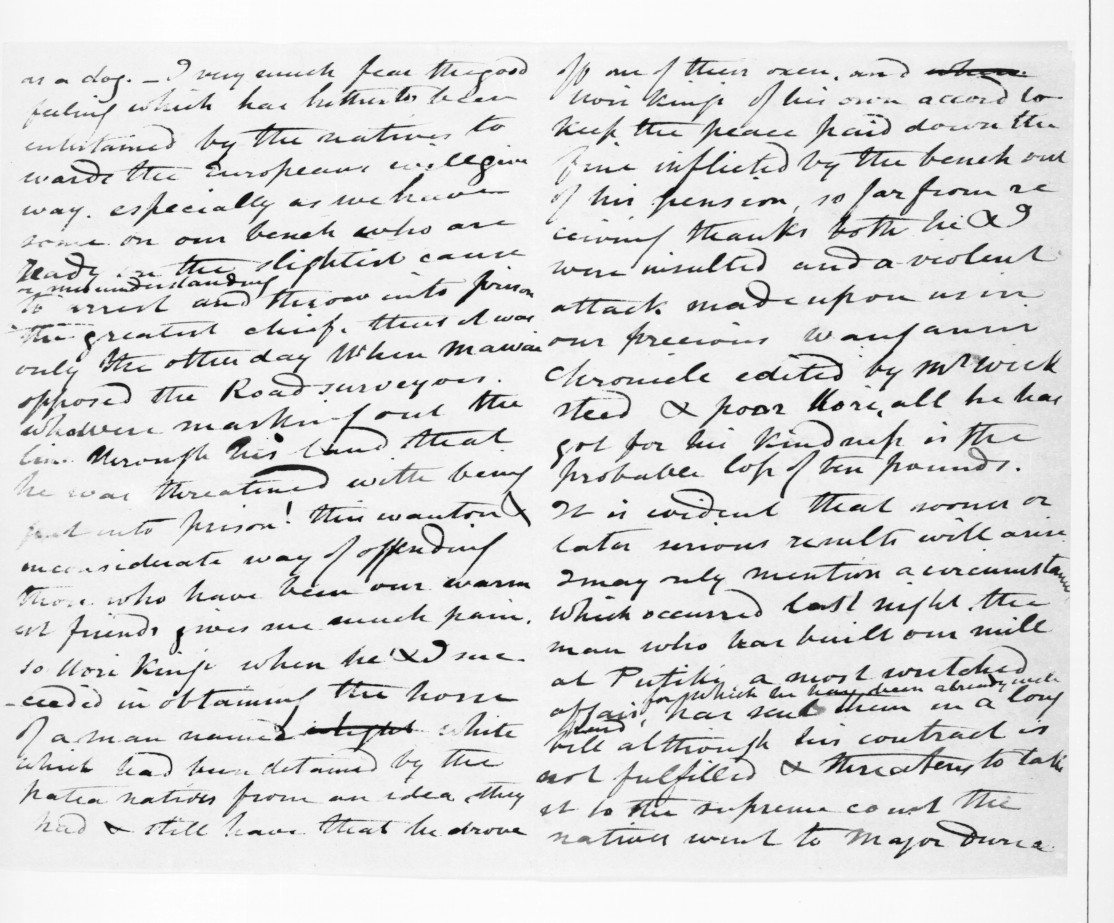 as a dog. – I very much fear the good
feeling which has hitherto been
entertained by the natives to
wards the Europeans will give
way. especially as we have
some on our bench who are
ready on the slightest cause
or misunderstanding
to arrest and throw into prison
the greatest chief. thus it was
only the other day when Mawai
opposed the Road surveyors.
who were marking out the
line through his land that
he was threatened with being
put into prison! this wanton &
inconsiderate way of offending
those who have been our warm
est friends gives me much pain.
so Hori King when he & I suc
-ceeded in obtaining the horse
of a man named white
which had been detained by the
Patea natives from an idea they
had & still have that he drove
off one of their oxen, and when
Hori King of his own accord to
keep the peace paid down the
fine inflicted by the bench out
of his pension, so far from re
ceiving thanks both he & I
were insulted and a violent
attack made upon us in
our precious Wanganui
Chronicle edited by Mr Wick
steed & poor Hori, all he has
got for his kindness is the
probable loss of ten pounds.
It is evident that sooner or
later serious results will arise
I may only mention a circumstance
which occurred last night. the
man who has built our mill
at Putiki a most wretched
affair, for which he has been already well
paid, has sent them in a long
bill although his contract is
not fulfilled & threatens to take
it to the supreme court the
natives went to Major Durie